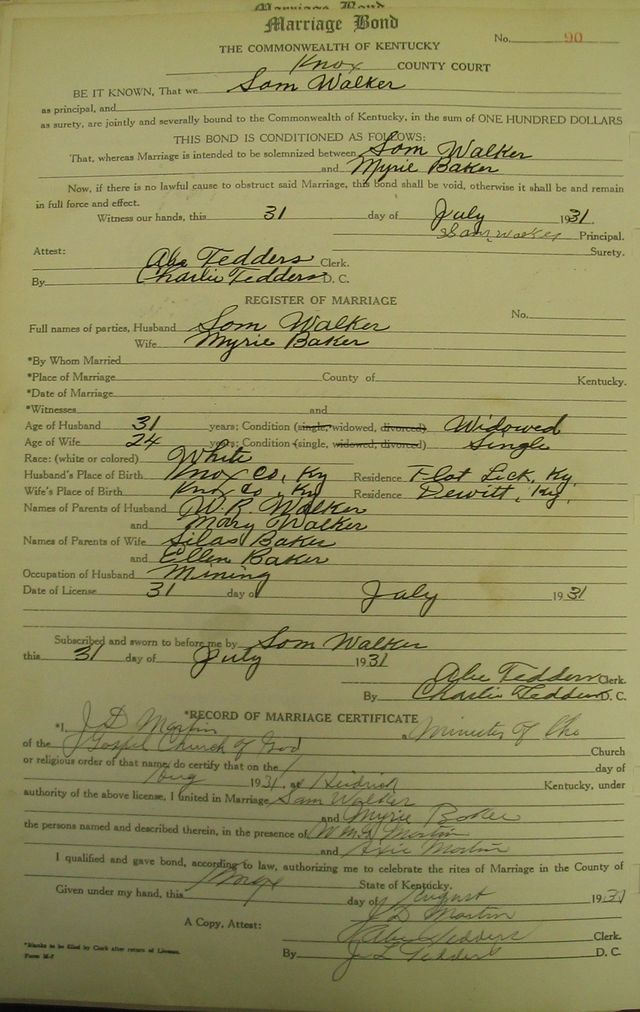 Marriage Bond
Marriage Bond
No. 90
THE COMMONWEALTH OF KENTUCKY
Knox COUNTY COURT
BE IT KNOWN, That we Sam Walker
as principal, and
as surety, are jointly and severally bound to the Commonwealth of Kentucky, in the sum of ONE HUNDRED DOLLARS
THIS BOND IS CONDITIONED AS FOLLOWS:
That, whereas Marriage is intended to be solemnized between Sam Walker
and Myrie Baker
Now, if there is no lawful cause to obstruct said Marriage, this bond shall be void, otherwise it shall be and remain
in full force and effect.
Witness our hands, this 31 day of July 1931.
Sam Walker Principal.
Surety.
Attest:
Abe Tedders Clerk.
By Charlie Tedders D. C.
REGISTER OF MARRIAGE
No.
Full names of parties, Husband Sam Walker
Wife Myrie Baker
*By Whom Married
*Place of Marriage County of Kentucky.
*Date of Marriage
*Witnesses and
Age of Husband 31 years; Condition (single, widowed, divorced) Widowed
Age of Wife 24 years; Condition (single, widowed, divorced) Single
Race: (white or colored) White
Husband's Place of Birth Knox Co, Ky Residence Flat Lick, Ky.
Wife's Place of Birth Knox Co, Ky Residence Dewitt, Ky.
Names of Parents of Husband W.R. Walker
and Mary Walker
Names of Parents of Wife Silas Baker
and Ellen Baker
Occupation of Husband Mining
Date of License 31 day of July 1931
Subscribed and sworn to before me by Sam Walker
this 31 day of July 1931
Abe Tedders Clerk.
By Charlie Tedders D. C.
*RECORD OF MARRIAGE CERTIFICATE
*I, J D Martin a Minister of the
of the Gospel Church of God Church
or religious order of that name, do certify that on the 1 day of
Aug 1931, at Heidrick Kentucky, under
authority of the above license, I united in Marriage Sam Walker
and Myrie Baker
the persons named and described therein, in the presence of Martin
and Martin
I qualified and gave bond, according to law, authorizing me to celebrate the rites of Marriage in the County of
Knox State of Kentucky.
Given under my hand, this day of August 1931
J D Martin
A Copy, Attest: Abe Tedders Clerk.
By J L Tedders D. C.
*blanks to be filled by Clerk after return of License.